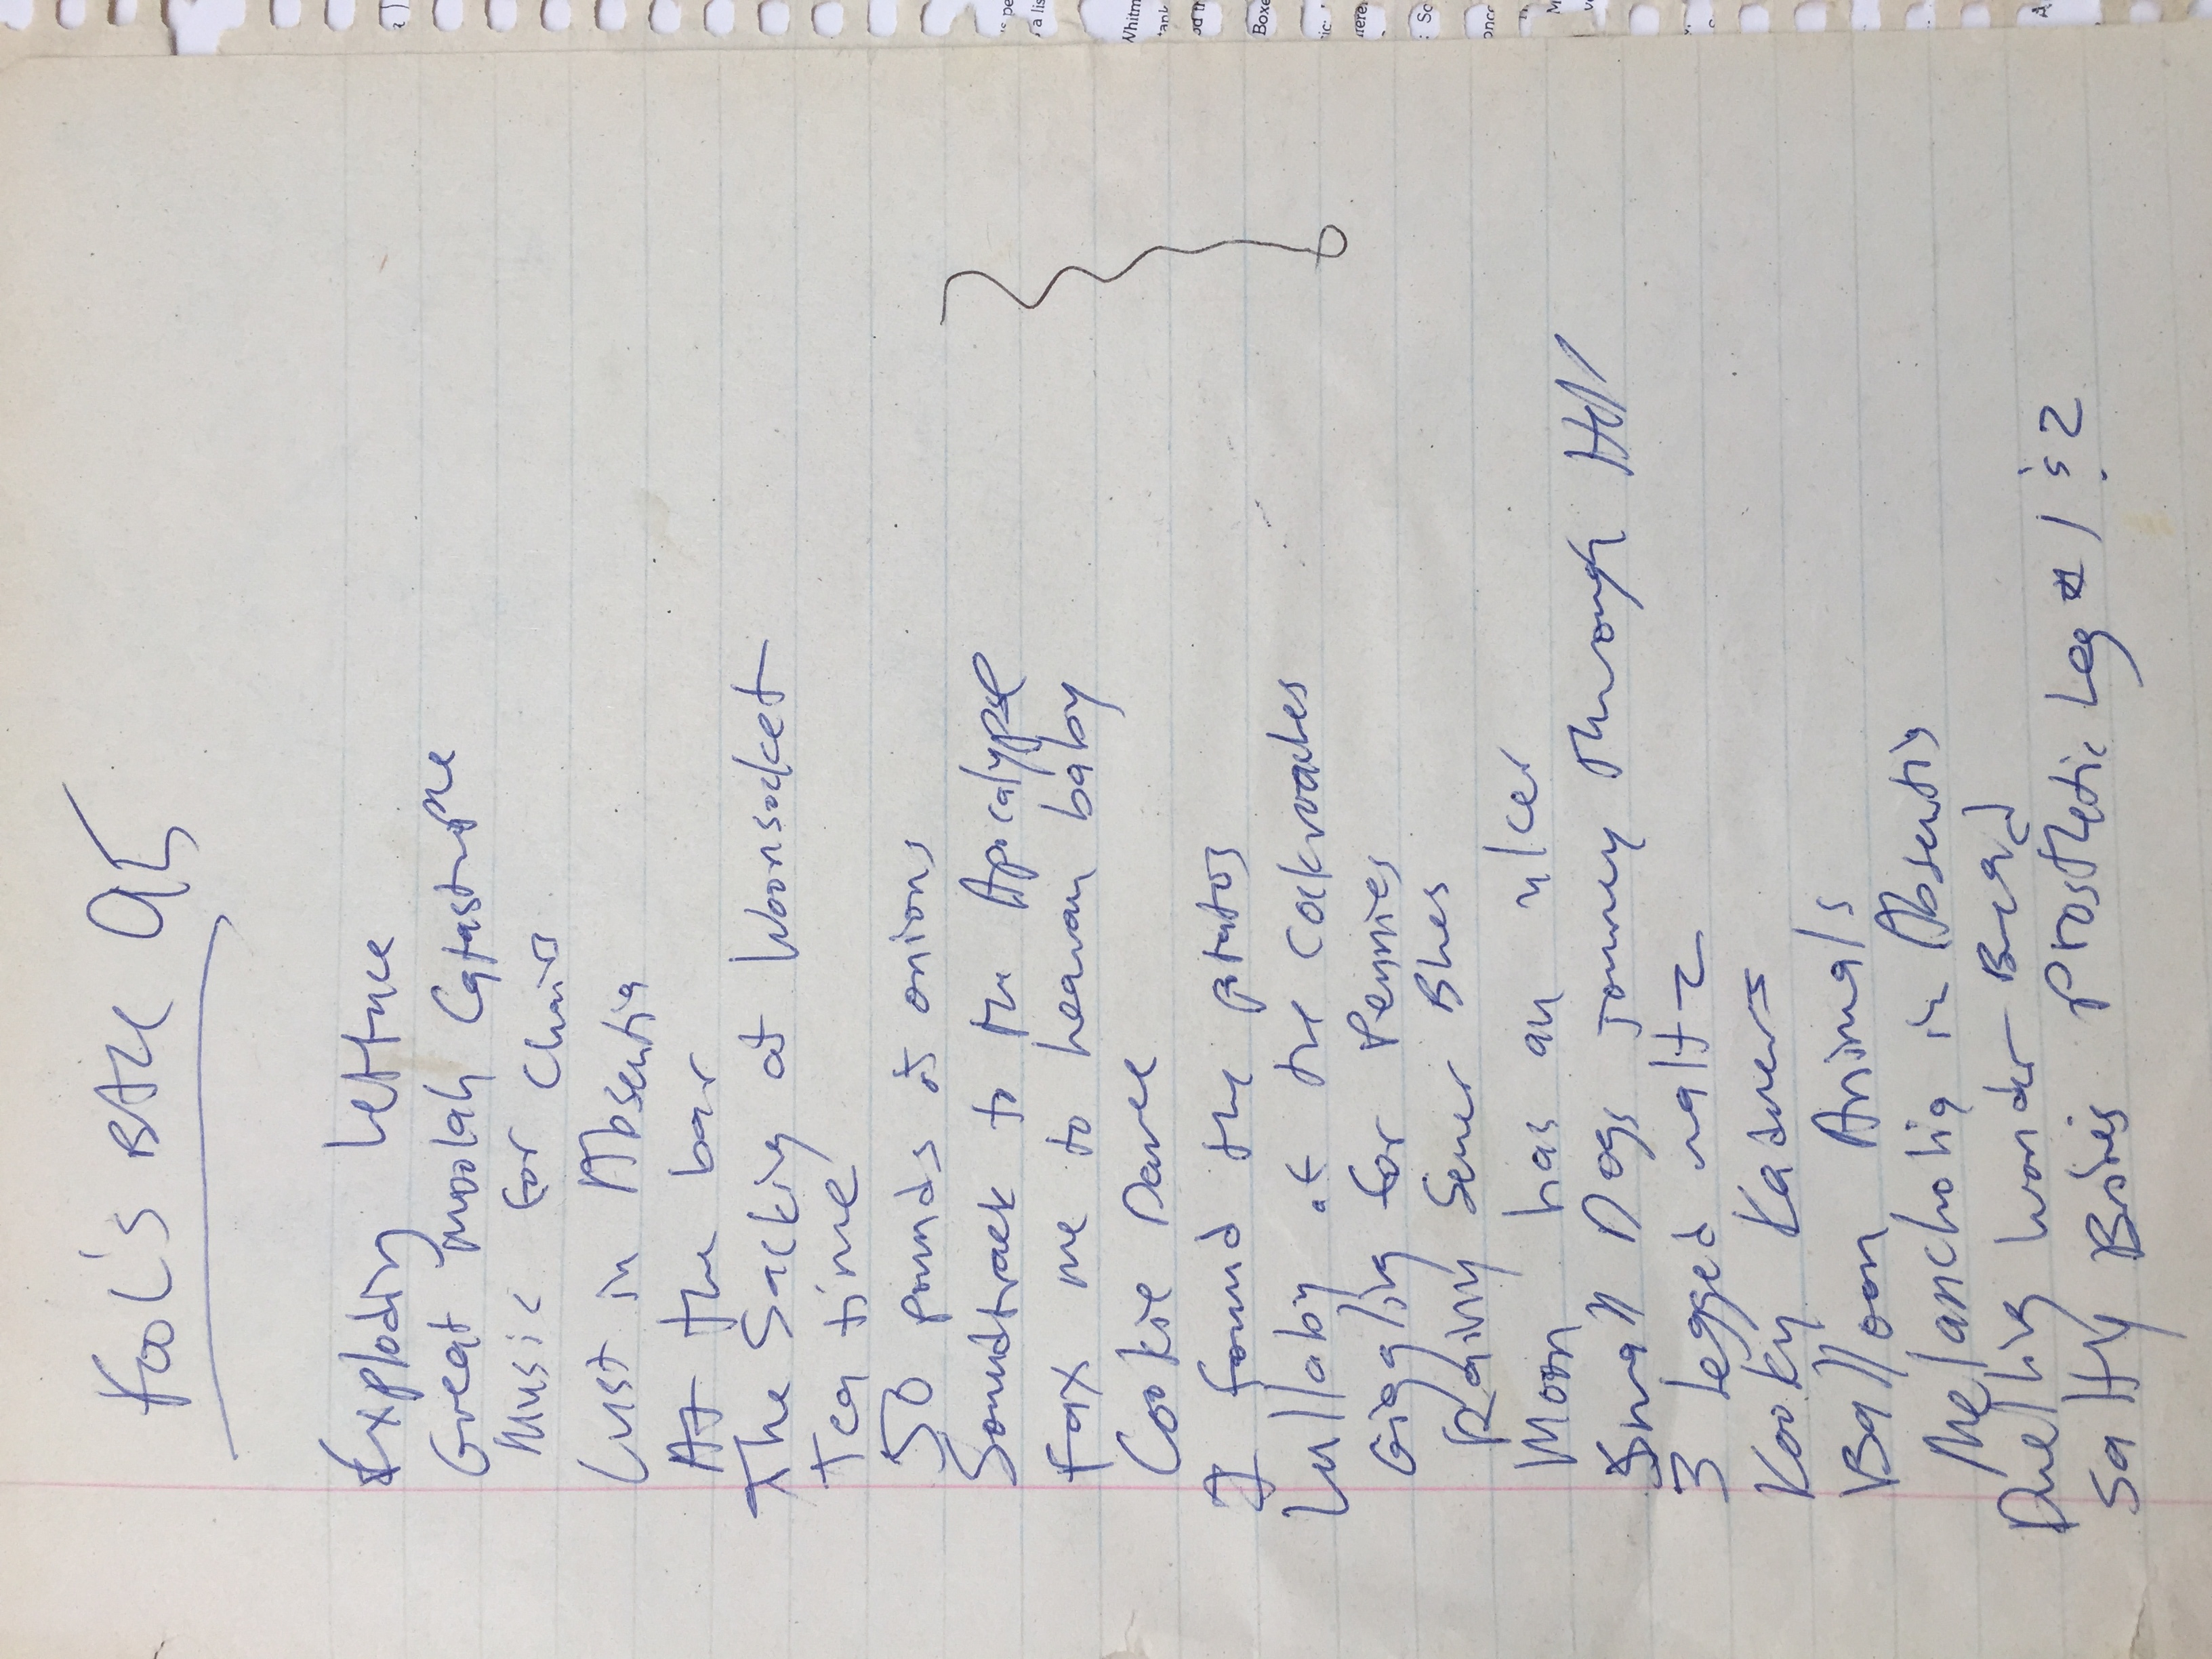 Fool's BAZ 95
Exploding lettuce
Great moolah Catastrophe
Music for Chairs
Lust in Absentia
At the bar
The Sacking of Woonsocket
Tea time
50 pounds of onions
Soundtrack to the Apocalypse
Fax me to heaven baby
Cookie Dance
I found the potatos
Lullaby of the cockroaches
Giggling for Pennies
Raining Sewer Blues
Moon has an ulcer
Small Dogs Journey through Hell
3 legged waltz
Kooky Kadavers
Balloon Animals
Melancholia in Absentia
Duelling wonder Bread
Salty Bodies Prosthetic Leg # 1 & 2